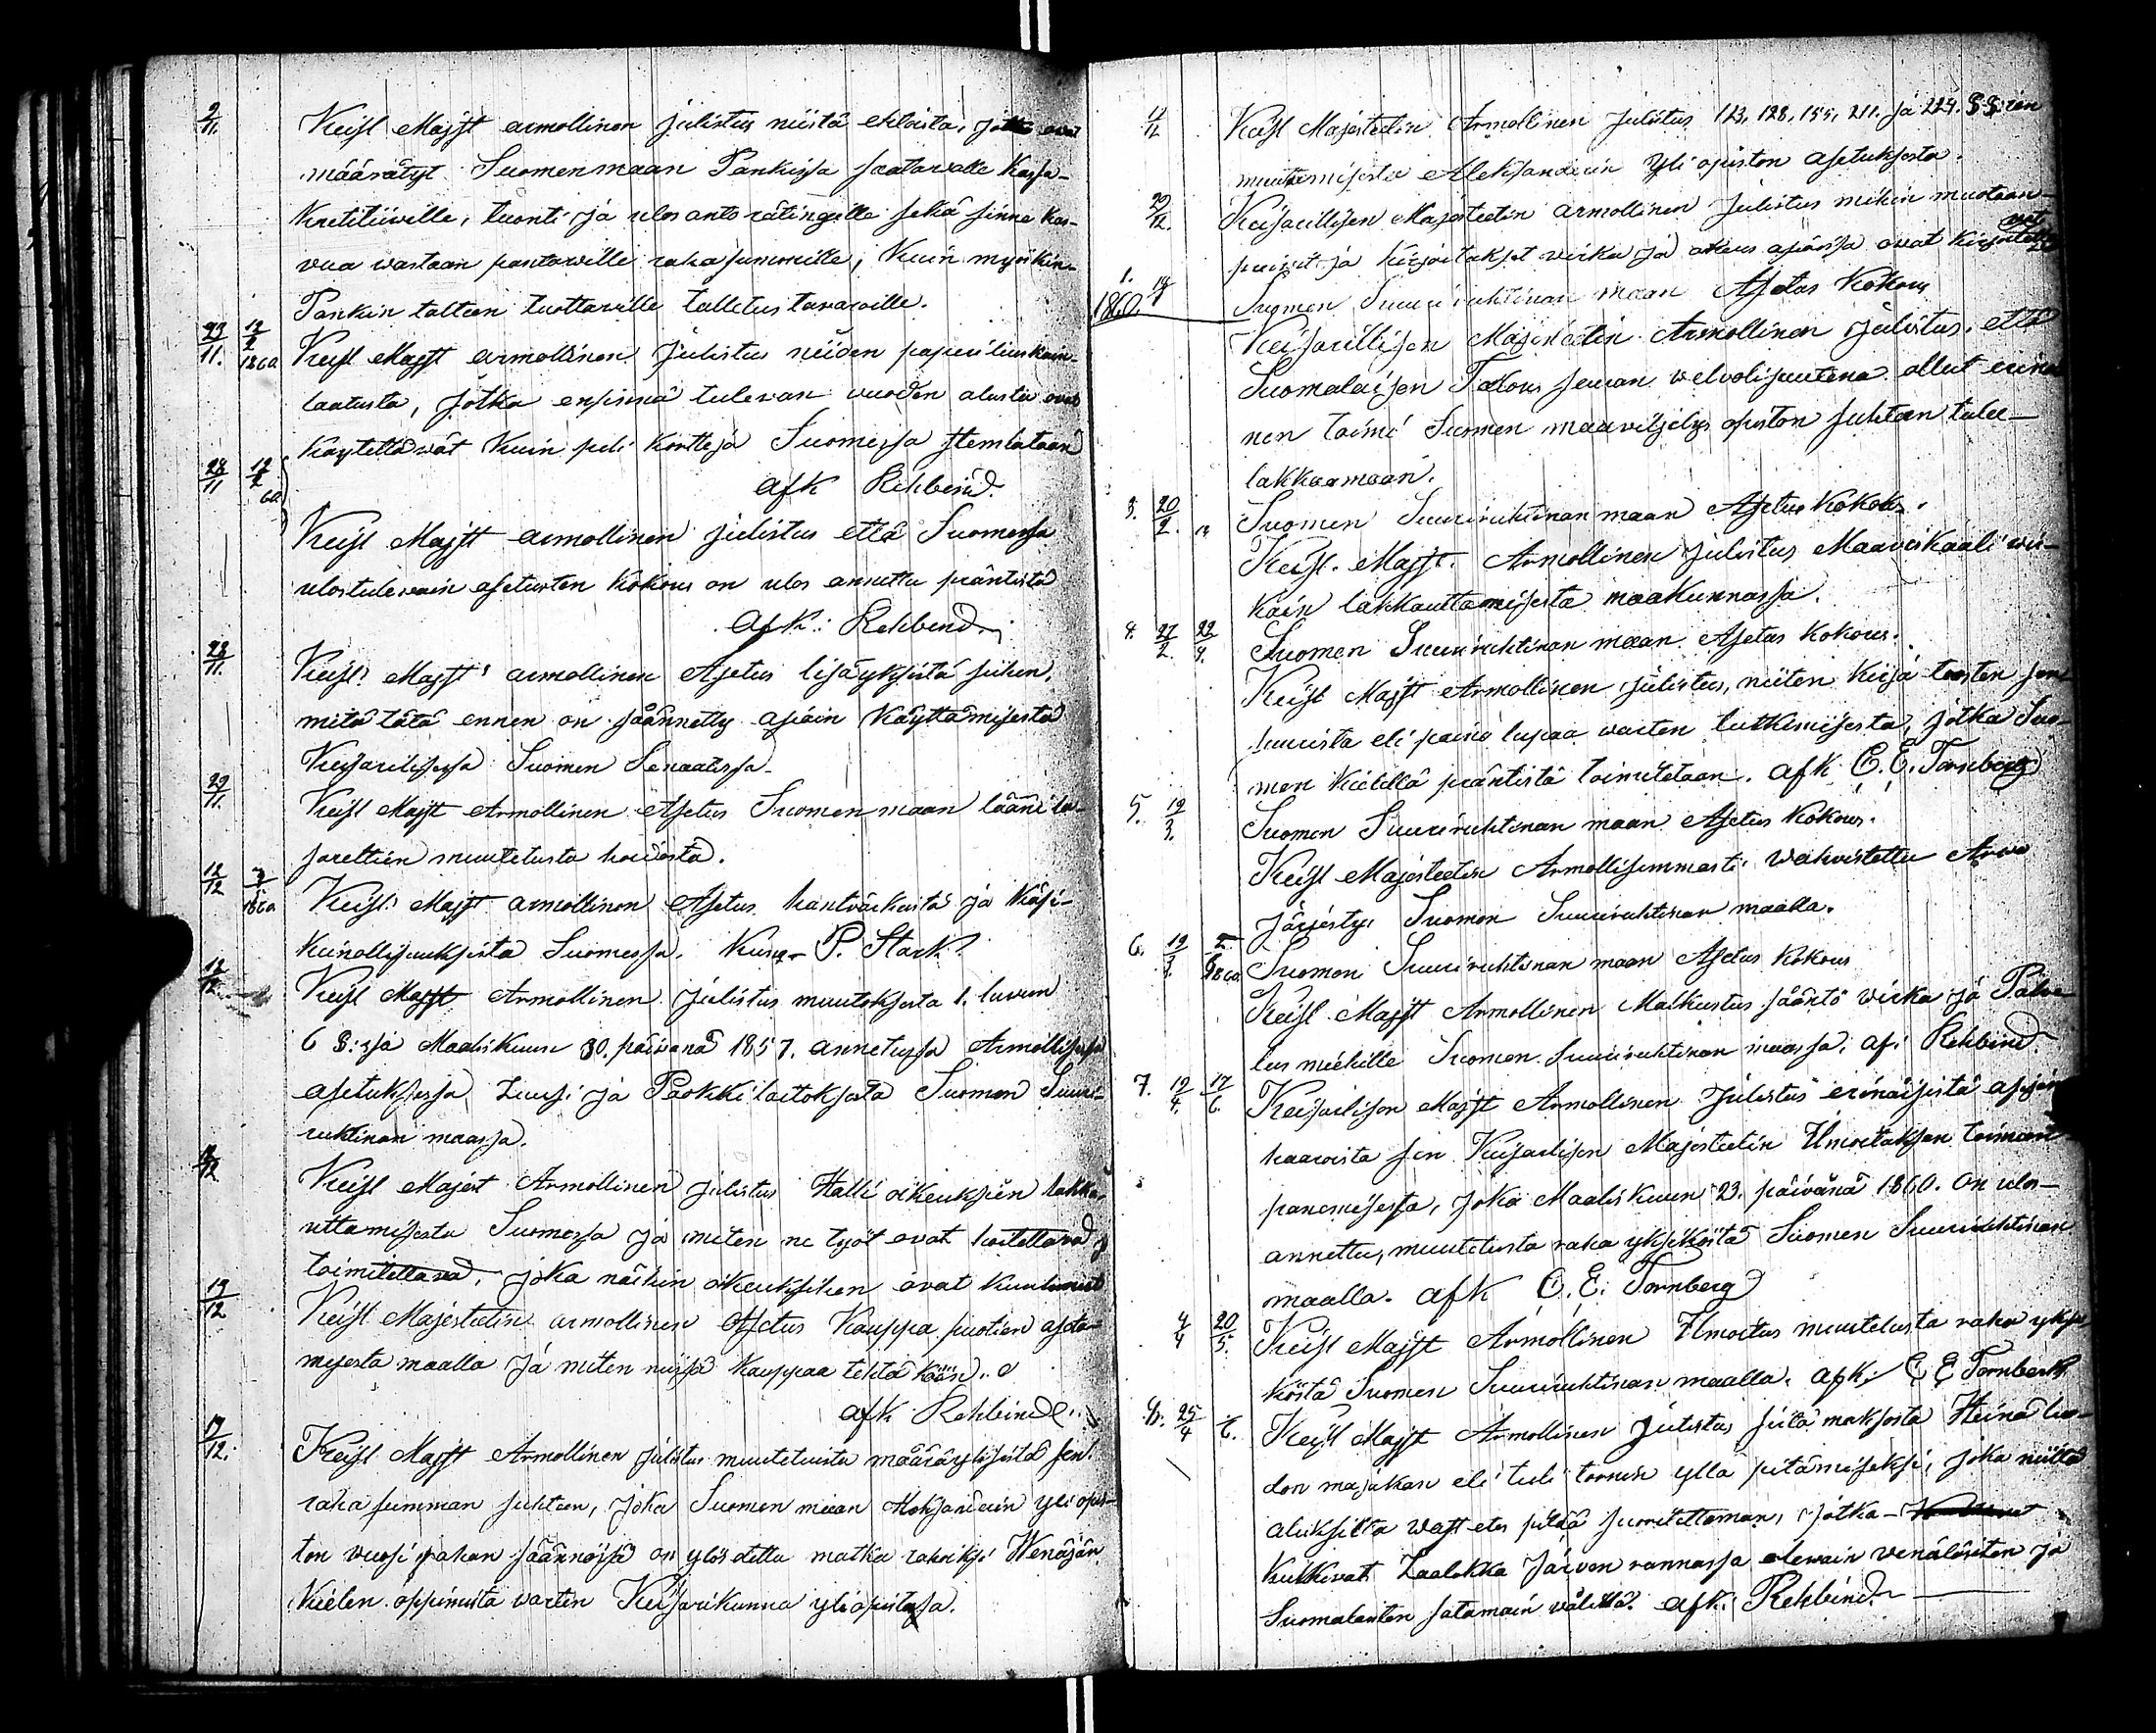 2/11. Keisl Majst armollinen julistus niistä ehdoista, jotka ovat
määrätyt Suomenmaan Pankissa saatavalle Kassa-
Kretitiiville, tuonti ja ulos anto rätingille sekä sinne kas-
vua wastaan pantawille raha summille; Kuin myöskin
Pankin talteen tuottaville talletus tavaroille.
29/11. 12/2 1860 Keisl Majst armollinen julistus niiden paperiliuskain
laatusta, jotka ensinnä tulevan vuoden alusta ovat
Kaytettäwät Kuin peli kortteja Suomessa stemlataan
28/11 12/2 60 afk Rehbind.
Keisl Majst armollinen julistus että Suomessa
ulostulewain asetusten Kokous on ulos annettu präntistä
afk: Rehbind.
28/11. Keisl Majst armollinen Asetus lisäyksistä siihen,
mitä tätä ennen on säännetty asiain Käyttämisestä
Keisarilisessa Suomen Senaatissa.
29/11. Keisl Majst Armollinen Asetus Suomen maan lääni la-
sarettien muutetusta hoidosta.
12/12 3/ 1860 Keisl Majst armollinen Asetus hantvärkistä ja Käsi-
Keinollisuuksista Suomessa. P. Stark
12/12 Keisl Majst Armollinen julistus muutoksesta 1. luvun
6 §:ssä Maaliskuun 30. päivänä 1857. annetussa Armollisessa
asetuksessa Luosi ja Paokki laitoksesta Suomen Suuri-
ruhtinan maassa.
12 Keisl Majest Armollinen julistus Halli oikeuksien lakka-
uttamisesta Suomessa ja miten ne työt ovat hoitettavad ja
toimitettavad, joka näihin oikeuksihen ovat kuulunest
19/12 Keisl Majestetin armollinen Asetus Kauppa puotien aseta-
misesta maalla ja miten niissä Kauppaa tehtäkään.
afk Rehbind
19/12. Keisl Majst Armollinen julistus muutetuista määräyksistä sen
raha summan suhteen, joka Suomen maan Aleksanderin yli opis-
ton vuosi rahan säännöissä on ylös otettu matka rahoiksi Wenäjän
Kielen oppimista varten Keisarikunna yliopistossa.
12 Keisl Majesteetin Armollinen julistus 123, 128, 155, 211. ja 224. §§:ien
muutamisesta Aleksanderin Yli opiston asetuksesta.
29/12. Keisarillisen Majesteetin armollinen julistus mihin muotoon
puinet ja kirjoitukset virka ja oikeus asioissa ovat kirjoitetta
vat
1. 1860. Suomen Suuriruhtinan maan Asetus Kokous
Keisarillisen Majesteetin Armollinen julistus, että
Suomalaisen Talous seuran velvolisuutena ollut erinä
nen toimi Suomen maaviljelys opiston suhteen tulee-
lakkaamaan.
3. 20/2. Suomen Suuriruhtinan maan Asetus Kokous.
Keisl. Majst. Armollinen julistus Maaviskaali wir-
kain lakkauttamisesta maakunnassa.
4. 27/2. 22/4. Suomen Suuriruhtinan maan Asetus Kokous.
Keisl Majst Armollinen julistus, niiten kirja toosten sen-
suurista eli paino lupaa warten tutkimisesta, jotka Suo-
men kielellä präntistä toimitetaan. afk C. E. Tornberg
5. 19/3. Suomen Suuriruhtinan maan Asetus Kokous.
Keisl Majesteetin Armollisimmasti Wahvistettu Arwo
Järjestys Suomen Suuriruhtinan maalla.
6. 19/3. 1860 Suomen Suuriruhtinan maan Asetus Kokous
Keisl Majst Armollinen Matkustus sääntö virka ja Palve
lus miehille Suomen Suuriruhtinan maassa. af: Rehbind.
7. 19/4. 17/6. Keisarlisen Majst Armollinen Julistus erinäisistä asijan
haaroista sen Keisarlisen Majesteetin Ilmoituksen toimeen
panemisessa, joka Maaliskuun 23. päivänä 1860. on ulos-
annettu, muutetusta raha yksiköstä Suomen Suuriruhtinan
maalla. afk C. E. Tornberg
4/4 20/5. Keisl Majst Armollinen Ilmoitus muutetusta raha yksi
köstä Suomen Suuriruhtinan maalla. afk: C E Tornberg
8. 25/4 6. Keisl Majst Armollinen Julistus siitä maksosta Heinä luo-
don majakan eli tuli tornin yllä pitämiseksi, joka niiltä
aluksilta wast edes pitää suoritettaman, jotka
kulkevat Laatokka Järven rannassa olewain venäläisten ja
Suomalaisten satamain väliä. afk: Rehbind.